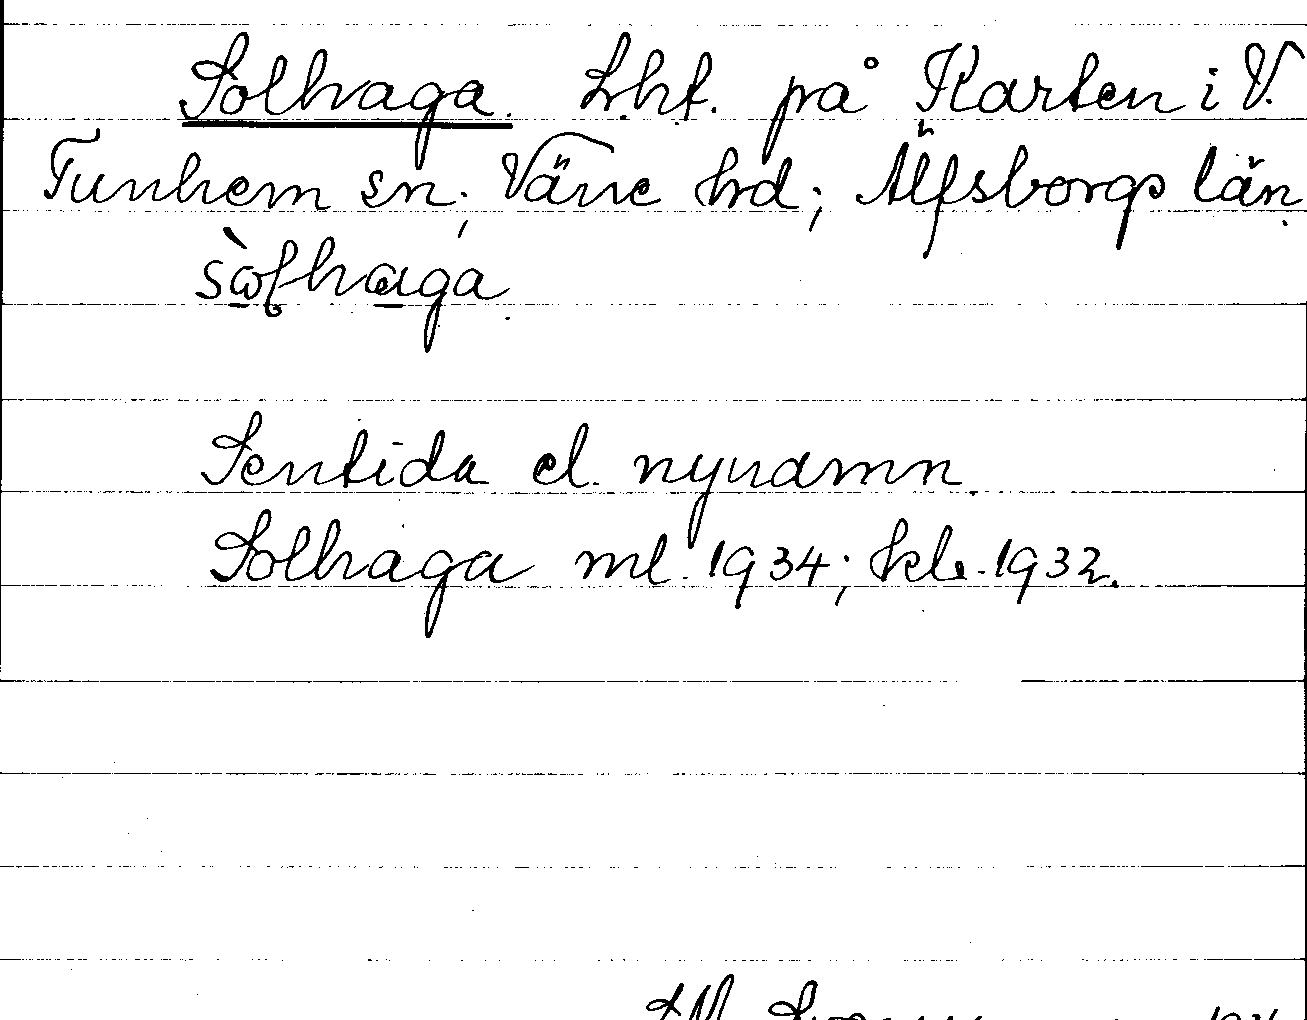 Solhaga. Lht. på Karten i V.
Tunhem sn; Väne hd; Älfsborgs län.
sòlhaga.
Sentida el. nynamn.
Solhaga ml. 1934; kle. 1932.